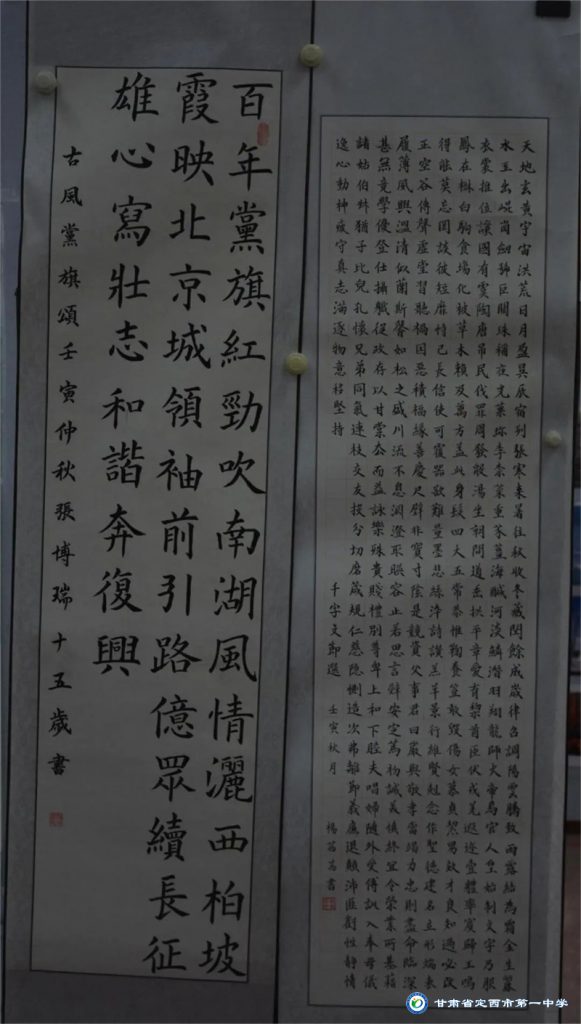 天地玄黄宇宙洪荒日月盈昃辰宿列張寒来暑往秋收冬藏閏餘成歲律吕調陽雲騰致雨露結為霜金生麗
水玉出崐崗劍號巨闕珠稱夜光菓珍李柰菜重芥薑海鹹河淡鱗潛羽翔龍師火帝鳥官人皇始制文字乃服
衣裳推位讓國有虞陶唐吊民伐罪周發殷湯坐朝問道垂拱平章愛育黎首臣伏戎羌遐迩壹體率賓歸王鳴
鳳在樹白駒食場化被草木賴及萬方蓋此身髮四大五常恭惟鞠養豈敢毀傷女慕貞絜男效才良知過必改
得能莫忘罔談彼短靡恃己長信使可覆器欲難量墨悲絲淬詩讚羔羊景行維賢尅念作聖德建名立形端表
正空谷傳聲虛堂習聽禍因惡積福緣善慶尺璧非寶寸陰是競資父事君曰嚴與敬孝當竭力忠則盡命臨深
履薄夙興溫清似蘭斯馨如松之盛川流不息淵澄取暎容止若思言辭安定篤初誠美慎終宜令榮業所基籍
甚無竟學優登仕攝職從政存以甘棠去而益詠樂殊貴賤禮別尊卑上和下睦夫唱婦隨外受傅訓入奉母儀
諸姑伯叔猶子比兒孔懷兄弟同氣連枝交友投分切磨箴規仁慈隱惻造次弗離節義廉退顛沛匪虧性静情
逸心動神疲守真志滿逐物意移堅持
千字文節選 壬寅秋月 楊書
百年黨旗紅勁吹南湖風情灑西柏坡
霞映北京城領袖前引路億眾續長征
雄心寫壯志和諧奔復興
古風黨旗頌壬寅仲秋張博瑞十五歲書
甘肃省定西市第一中学